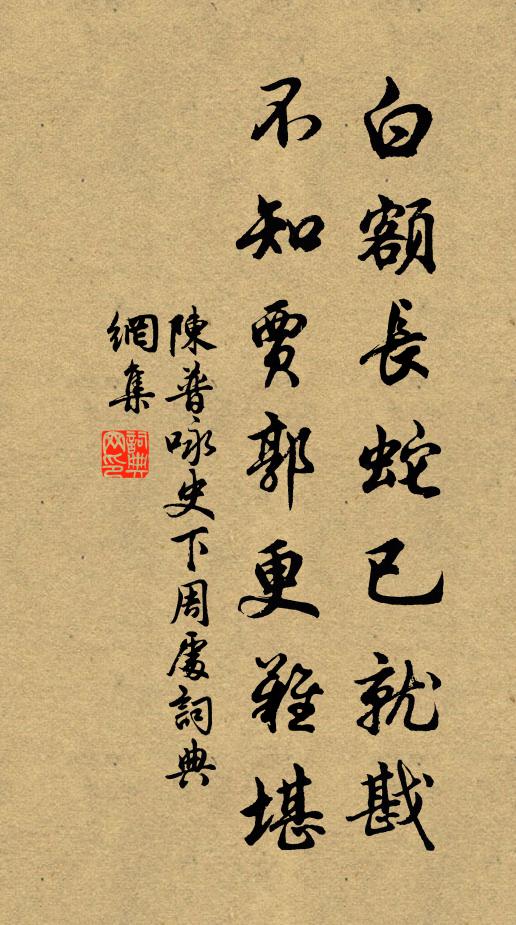 白額長蛇已就戡
不知賈郭更難堪
陳普咏史下周處詞典
網集
詞典
网印